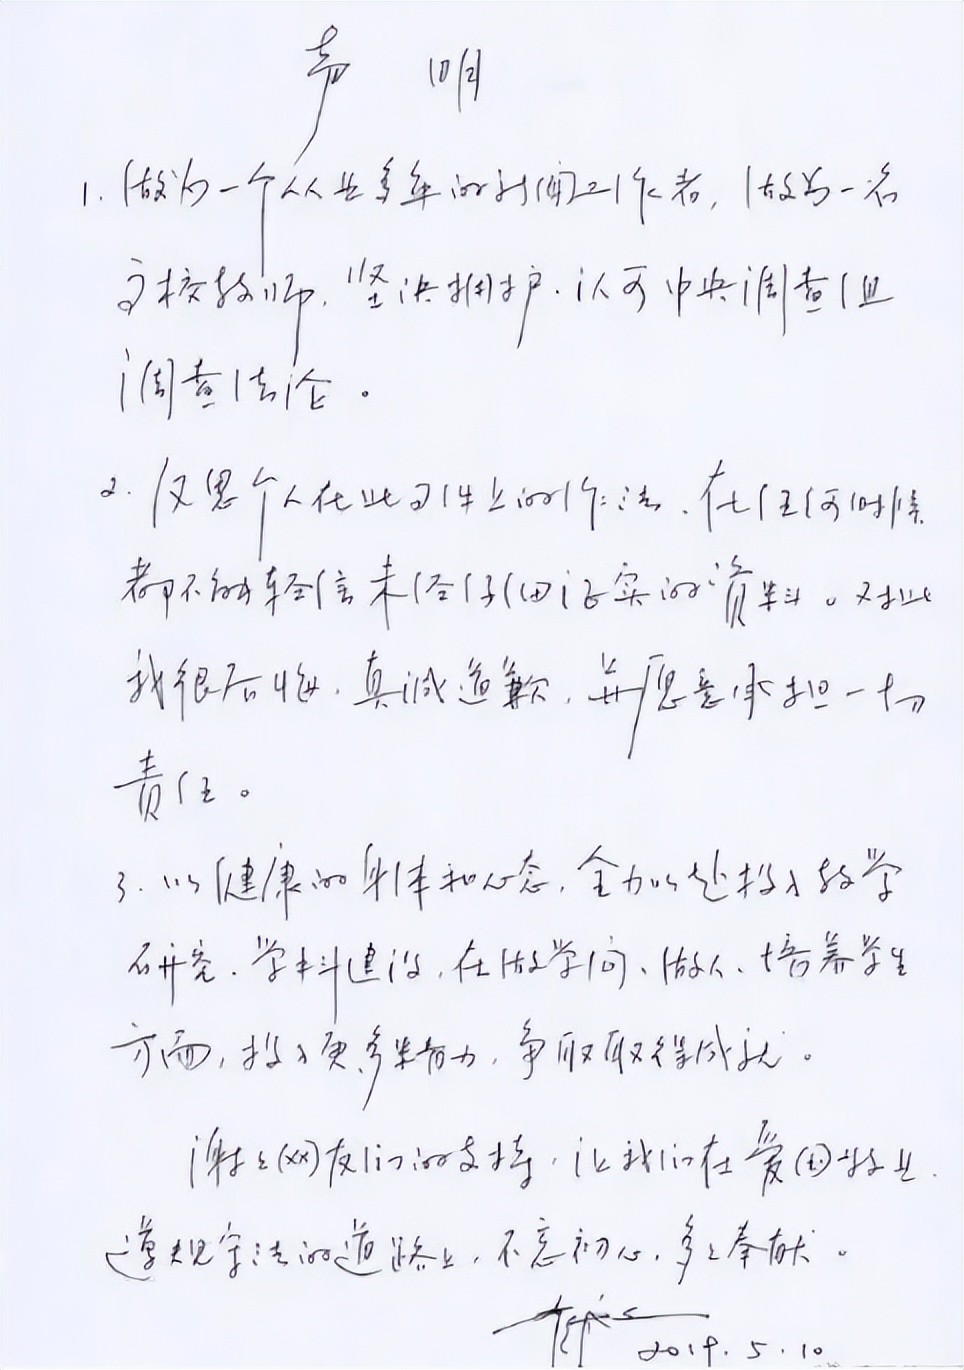 声明
1. 做为一个从业多年的新闻工作者,做为一名
高校教师,坚决拥护、认可中央调查组
调查结论。
2. 反思个人在此事件上的作法,在任何时候
都不能轻信未经仔细证实的资料。对此
我很后悔,真诚道歉,并愿意承担一切
责任。
3. 以健康的身体和心态,全力以赴投入教学
研究、学科建设,在做学问、做人、培养学生
方面,投入更多精力,争取取得成就。
谢谢网友们的支持,让我们在爱国敬业、
遵规守法的道路上,不忘初心,多多奉献。
2019.5.10